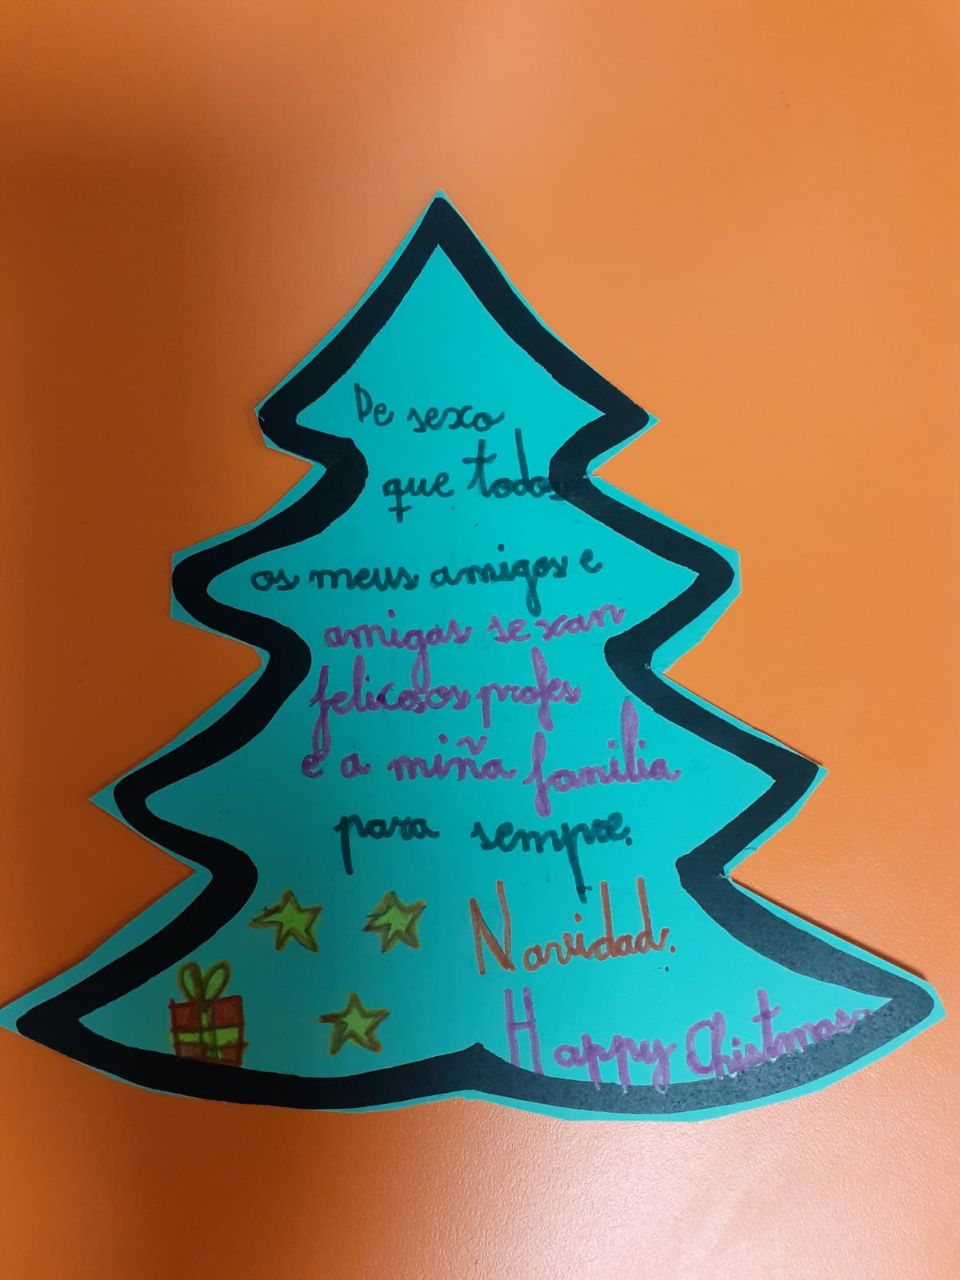 De sexo
que todos
os meus amigos e
amigas sexan
felicosos profes
e a miña familia
para sempre.
Navidad.
Happy Chistmas